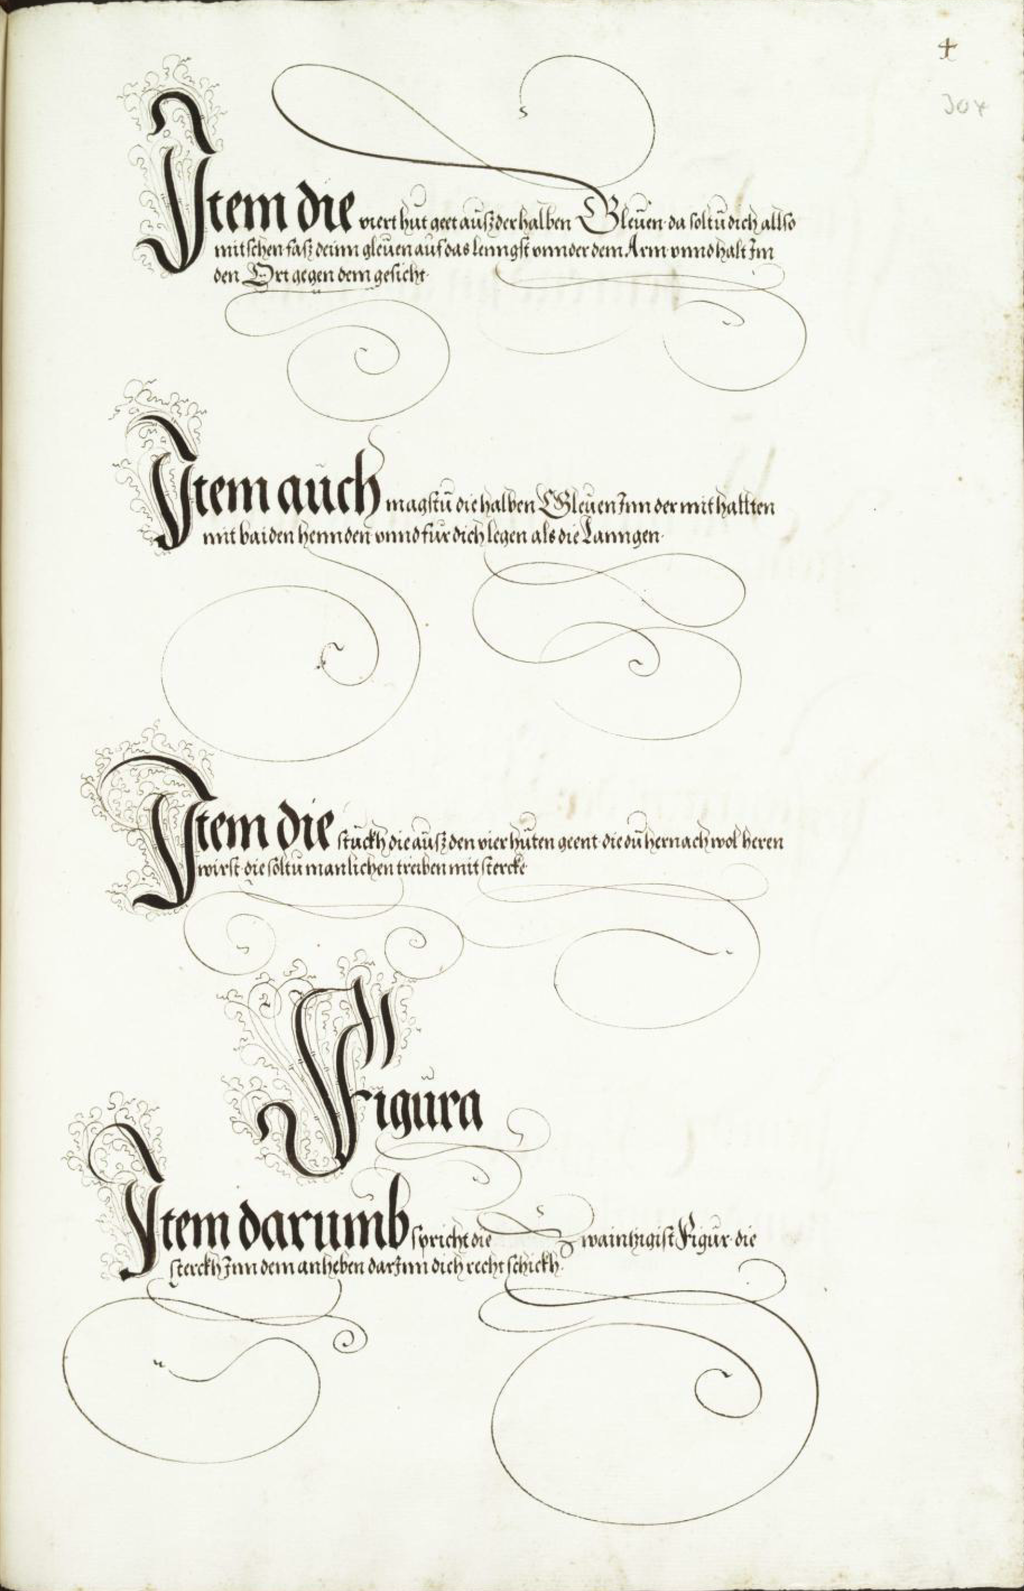 4
304
Item die viert hut geet auß der halben Gleuen da soltu dich allso
mit schen faß deinn gleuen auf das lenngst vnnder dem Arm vnnd halt Im
den Ort gegen dem gesicht.
Item auch magstu die halben Gleuen Inn der mit hallten
mit baiden hennden vnnd für dich legen als die Lanngen.
Item die stuckh die auß den vier huten geent die du hernach wol heren
wirst die soltu manlichen treiben mit stercke
Figura
Item darumb spricht die Zwaintzigist Figur die
sterckh Inn dem anheben darInn dich recht schickh.